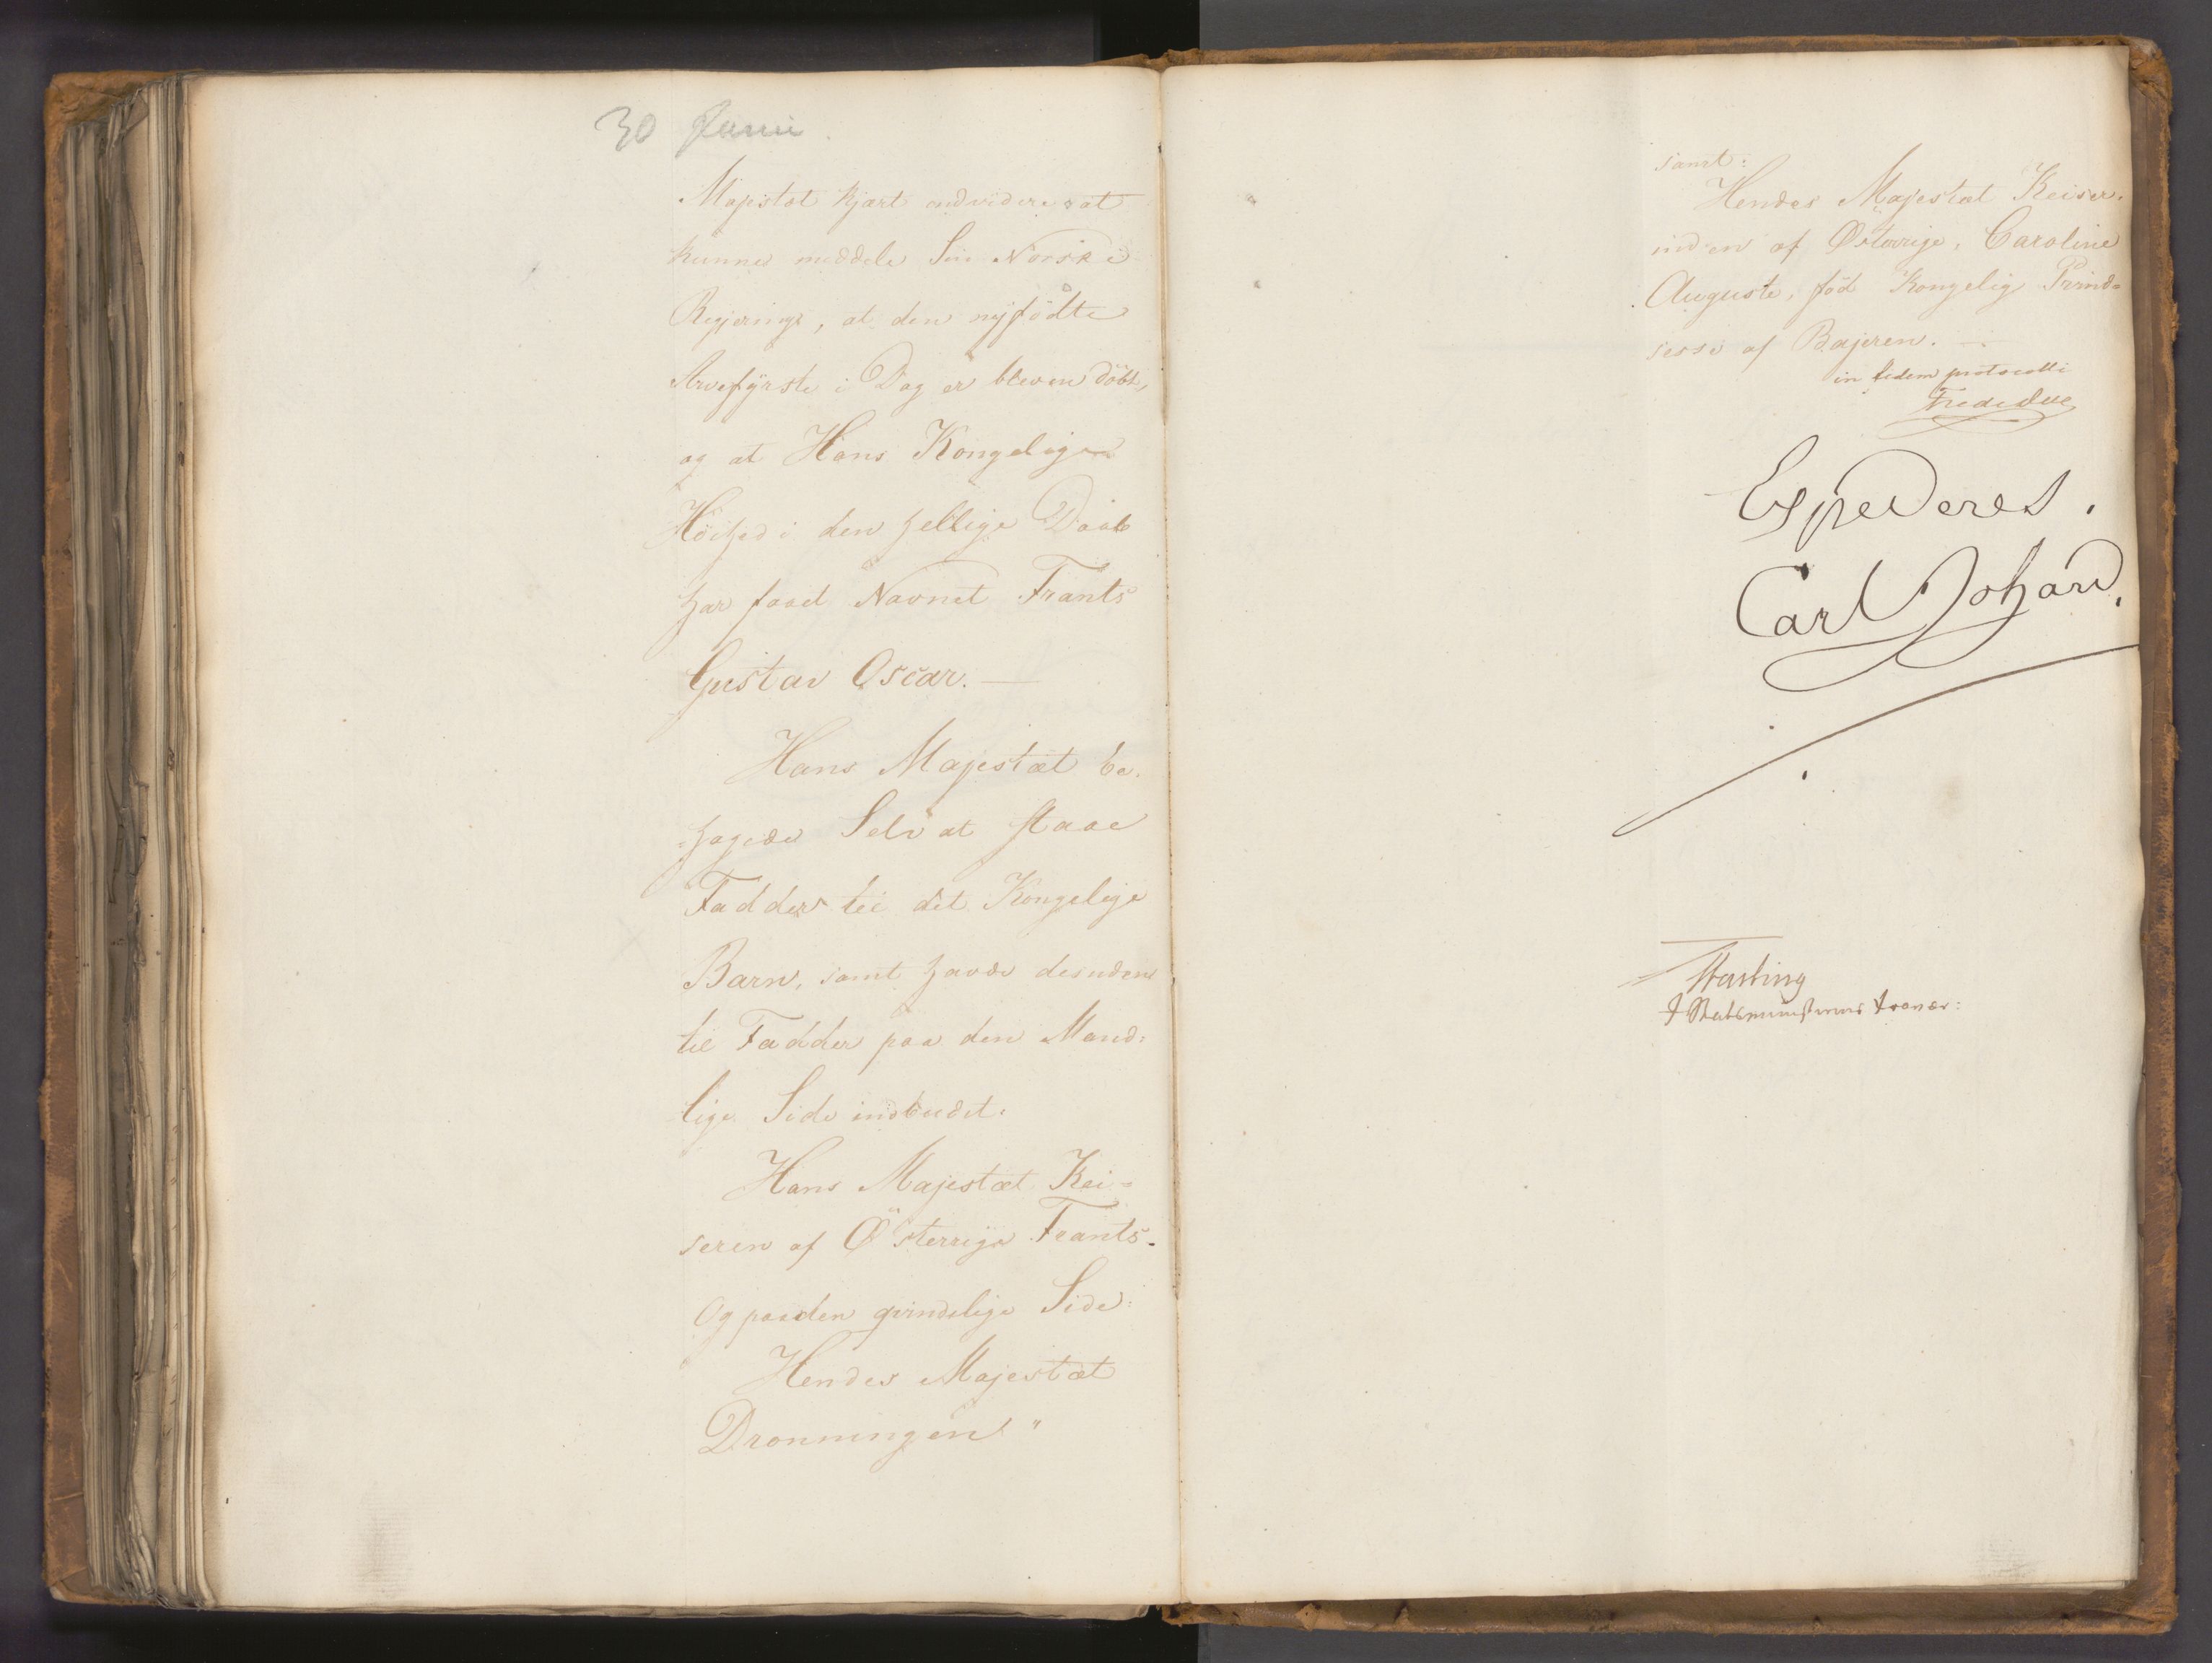 30 Junii.
Majestæt kjært endvidere at
kunne meddele Sin Norske
Regjering, at den nyfödte
Arvefyrste i Dag er bleven döbt,
og at Hans Kongelige
Höihed i den hellige Daab
har faaet Navnet Frants
Gustav Oscar. —
Hans Majestæt be-
hagede Selv at staae
Fadder til det Kongelige
Barn, samt havde desuden
til Fadder paa den Mand-
lige Side indbudet:
Hans Majestæt Kei=
seren af Österrige Frants.
Og paa den qvindelige Side:
Hendes Majestæt
Dronningen "
samt:
Hendes Majestæt Keiser-
inden af Österrige, Caroline
Auguste, föd Kongelig Prind=
sesse af Bajeren. —
in fidem protocolli
Fred. Due
Expederes.
Carl Johan.
Harbing
I Statsministerens Fravær: